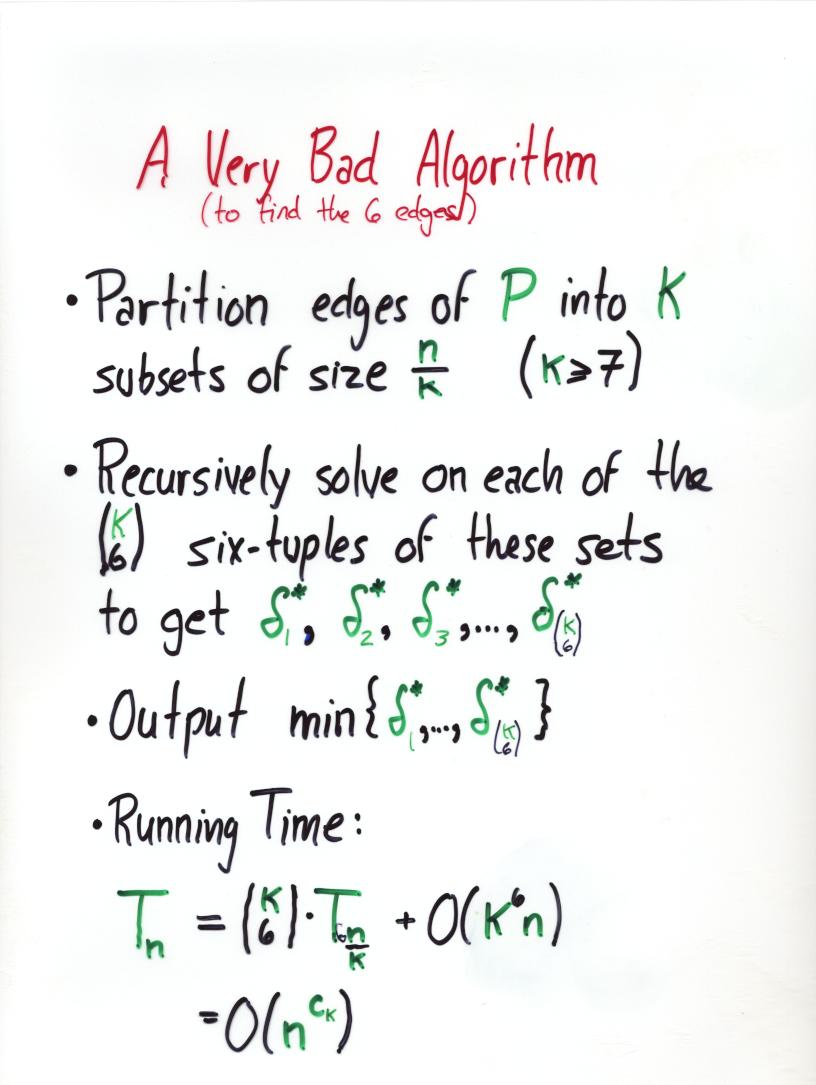 A Very Bad Algorithm
(to find the 6 edges!)
• Partition edges of P into K
subsets of size n/K (K≥7)
• Recursively solve on each of the
(K 6) six-tuples of these sets
to get δ₁*, δ₂*, δ₃*,..., δ*_(K 6)
• Output min{δ₁*,..., δ*_(K 6)}
• Running Time:
T_n = (K 6)·T_6n/K + O(K⁶n)
=O(n^C_K)